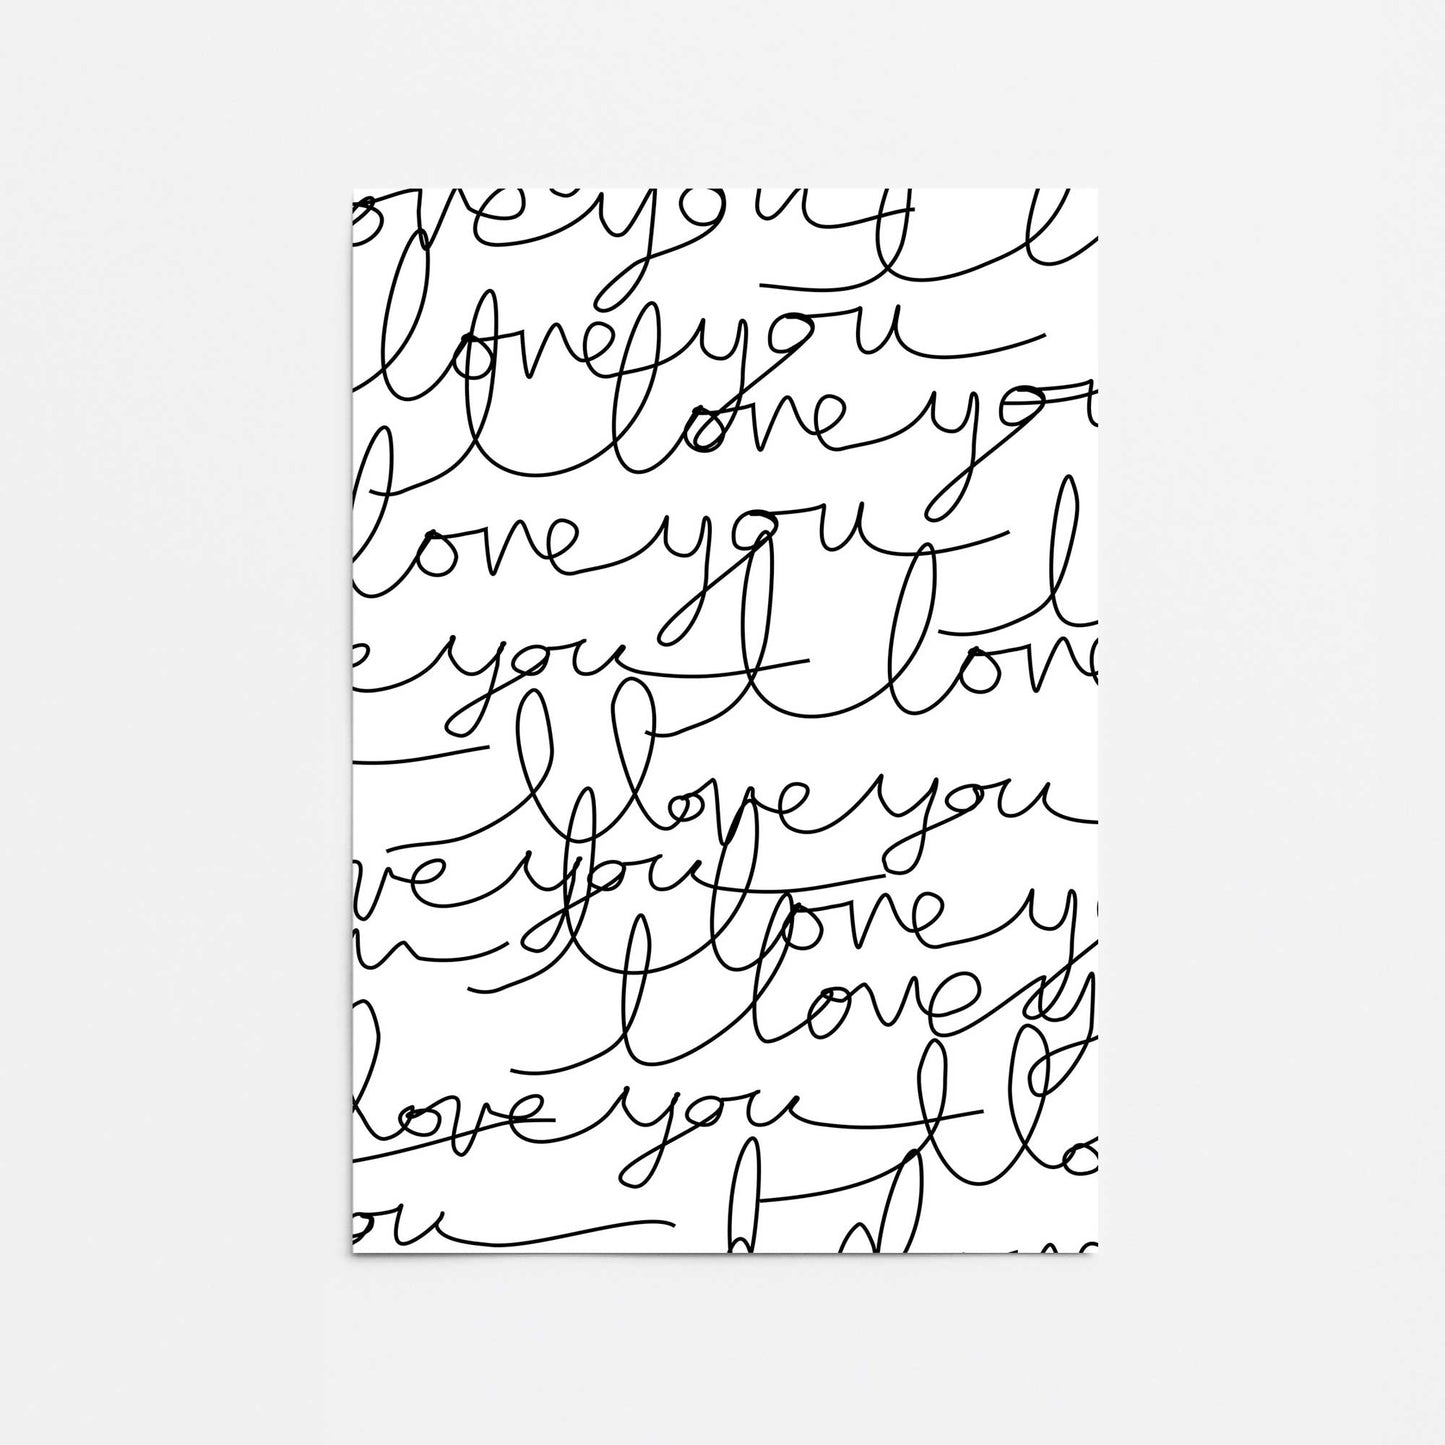 ove you I l
love you
I love yo
love you I
e you I love
I love you
ve you I love y
u I love y
love you I lo
ou I l